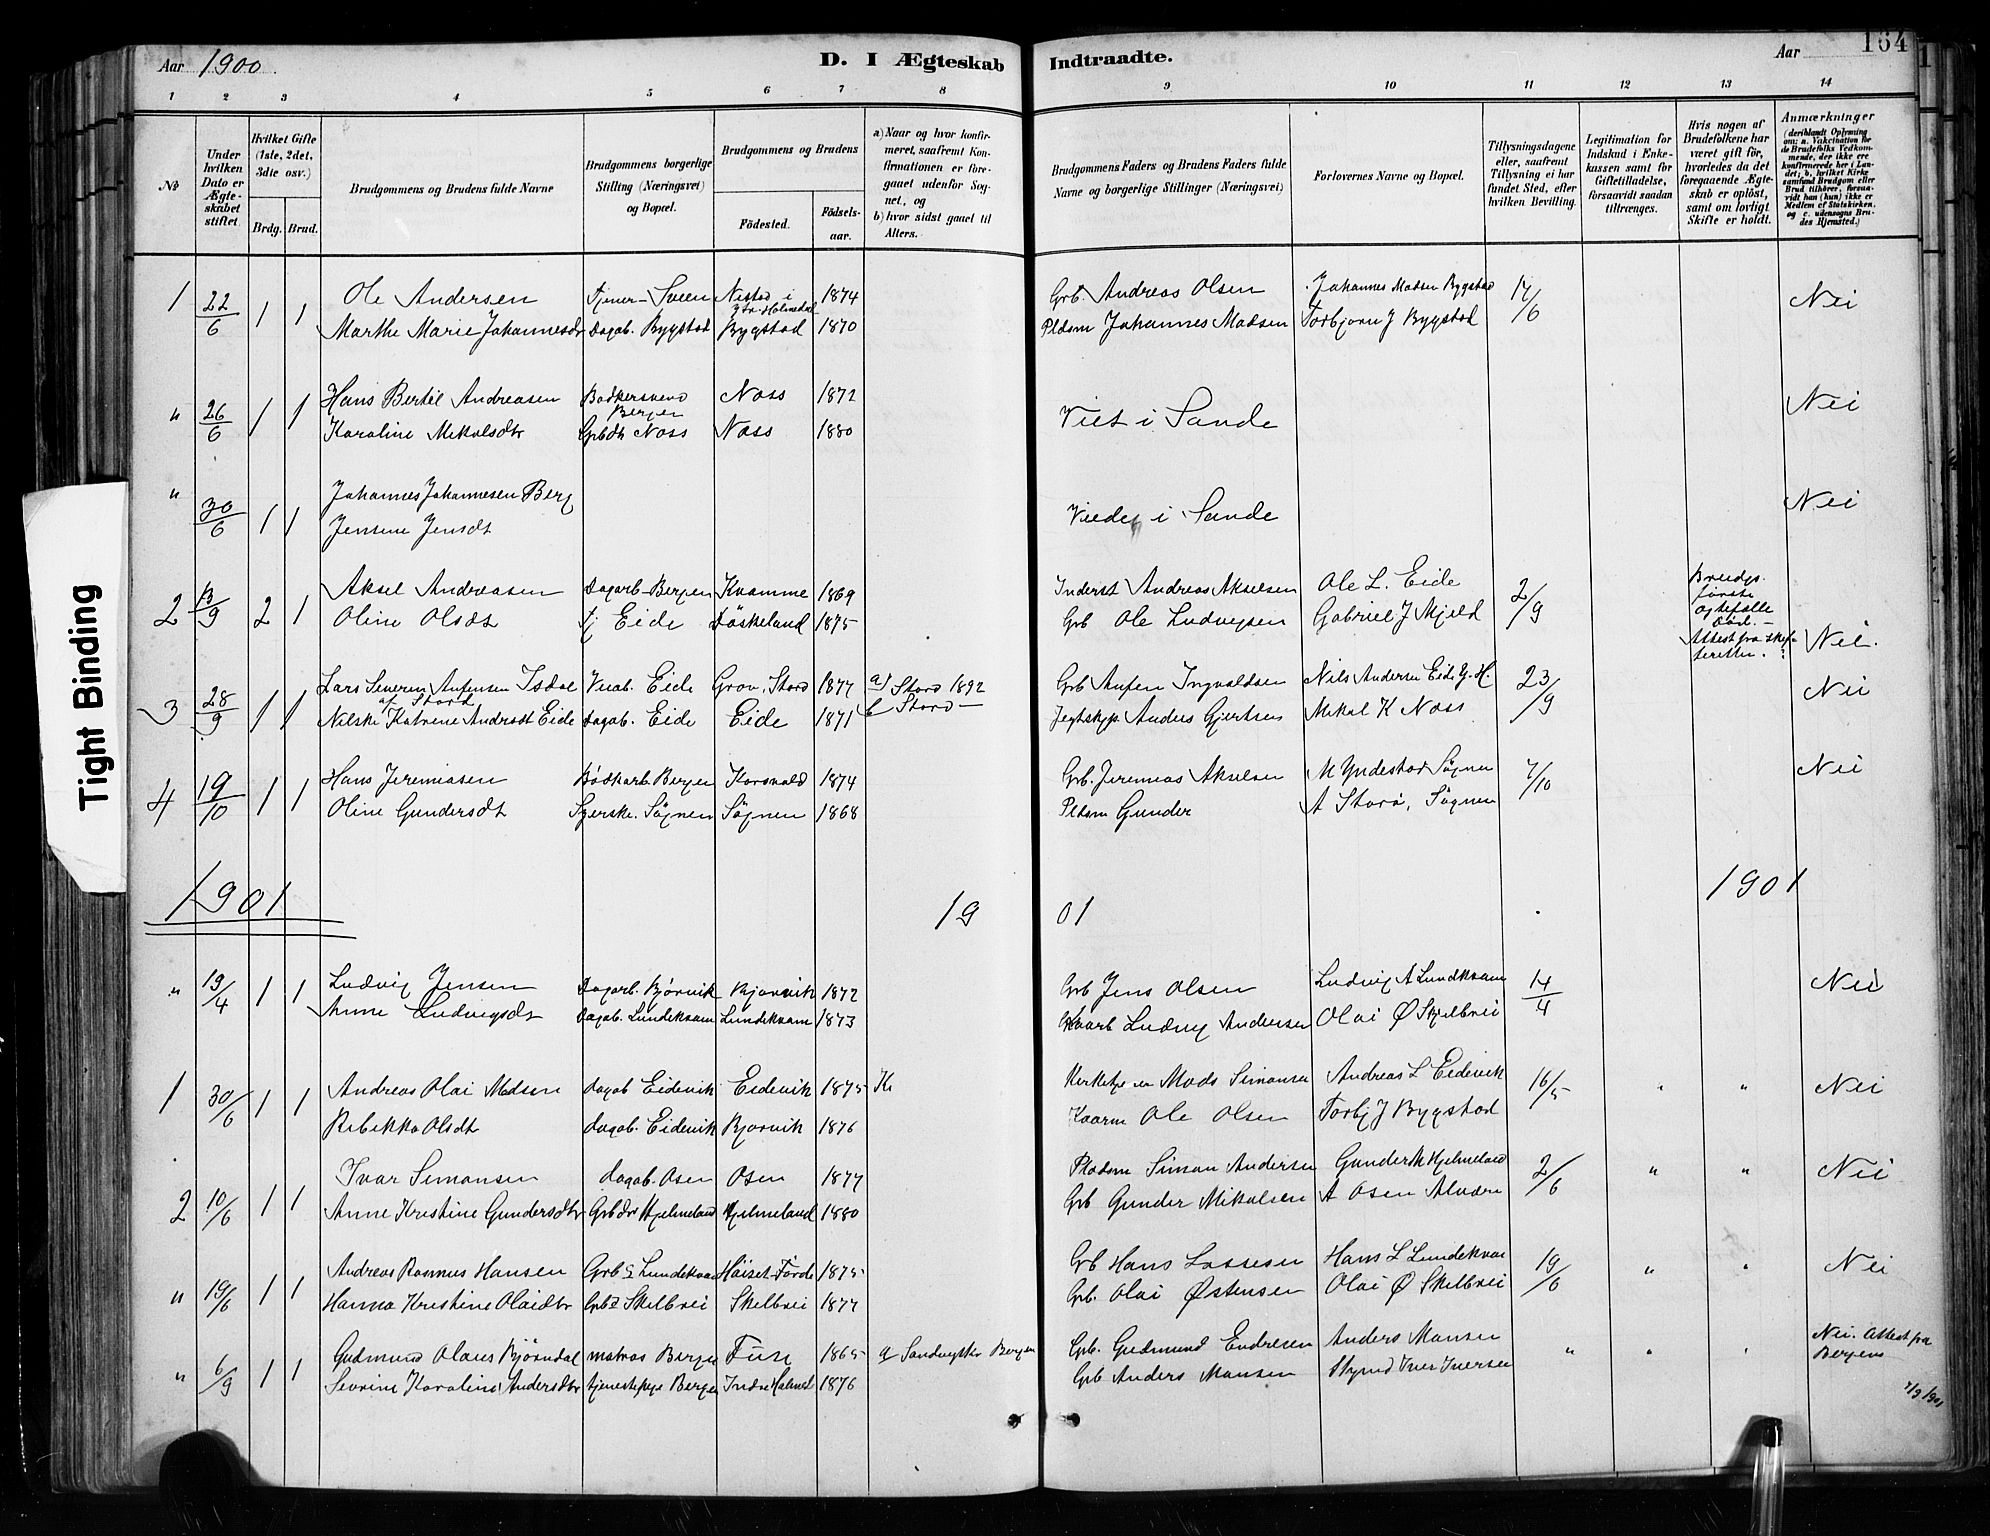 Aar 1900.
D. I Ægteskab Indtraadte.
Aar 164
1 2 3 4 5 6 7 8 9 10 11 12 13 14
No
Under hvilken Dato er Ægteskabet stiftet.
Hvilket Gifte (1ste, 2det, 3die osv.)
Brdg. Brud.
Brudgommens og Brudens fulde Navne
Brudgommens borgerlige Stilling (Næringsvei) og Bopæl.
Brudgommens og Brudens
Födested.
Födselsaar.
a) Naar og hvor konfirmeret, saafremt Konfirmationen er foregaaet udenfor Sognet, og
b) hvor sidst gaaet til Alters.
Brudgommens Faders og Brudens Faders fulde Navne og borgerlige Stillinger (Næringsvei)
Forlovernes Navne og Bopæl.
Tillysningsdagene eller, saafremt Tillysning ei har fundet Sted, efter hvilken Bevilling.
Legitimation for Indskud i Enkekassen samt for Giftetilladelse, forsaavidt saadan tiltrænges.
Hvis nogen af Brudefolkene har været gift för, hvorledes da det foregaaende Ægteskab er oplöst, samt om lovligt Skifte er holdt.
Anmærkninger
(deriblandt Oplysning om: a. Vakcination for de Brudefolks Vedkommende, der ikke ere konfirmerede her i Landet; b. hvilket Kirkesamfund Brudgom eller Brud tilhörer, forsaavidt han (hun) ikke er Medlem af Statskirken, og c. udensogns Brudes Hjemsted.)
1 22/6 1 1 Ole Andersen Tjener - Sveen Nistad i Ytr. Holmedal 1874 Grb. Andreas Olsen Johannes Madsen Bygstad 17/6 Nei
Marthe Marie Johannesdr Dagab. Bygstad Bygstad 1870 Pldsm Johannes Madsen Torbjørn J Bygstad
" 26/6 1 1 Hans Bertil Andreasen Bødkersvend Bergen Nass 1872 Viet i Sande Nei
Karoline Mikalsdtr Grbdtr Nass Nass 1880
" 30/6 1 1 Johannes Johannesen Berg Viedet i Sande Nei
Jensine Jensdt
2 13/9 2 1 Aksel Andreasen Dagarb. Bergen Kvamme 1869 Inderst Andreas Akselsen Ole L. Eide 2/9 Brudgs. første ægtefælle død. - Attest fra skifteretten. Nei.
Oline Olsdt Tj Eide Døskeland 1875 Grb Ole Ludvigsen Gabriel J Mjeld
3 28/9 1 1 Lars Severin Anfensen Isdal af Stord Eide Grov, Stord 1877 a) Stord 1892 Grb Anfen Ingvaldsen Nils Andersen Eide G. H. 23/9 Nei
Nilske Katrine Andersdt Eide Dagab. Eide Eide 1871 b Stord - Jegtskpp. Anders Gjertsen Mikal K Nass
4 19/10 1 1 Hans Jeremiasen Bødkarb. Bergen Korsvold 1874 Grb. Jeremias Akselsen M Yndestad Søgnen 7/10 Nei
Oline Gundersdt Syerske. Søgnen Søgnen 1868 Pldsm Gunder A Storø, Søgnen
1901 19 01 1901
" 19/4 1 1 Ludvig Jensen Dagarb. Bjørvik Bjorvik 1872 Grb Jens Olsen Ludvig A Lundkvam 14/4 Nei
Anne Ludvigsdt Dagab. Lundekvam Lundekvam 1873 Ludvig Andersen Olai Ø Skjelbrei
1 30/6 1 1 Andreas Olai Madsen dagab Eidevik Eidevik 1875 K Mads Simonsen Andreas L Eidevik 16/5 " " Nei
Rebekka Olsdt dagab. Eidevik Bjorvik 1876 Kaarm Ole Olsen Torbj J Bygstad
2 10/6 1 1 Ivar Simonsen dagab. Osen Osen 1877 Pladsm Simon Andersen Gunder M Hjelmeland 2/6 " " Nei
Anne Kristine Gundersdtr Grbdtr Hjelmeland Hjelmeland 1880 Grb Gunder Mikalsen A Osen
" 19/6 1 1 Andreas Rasmus Hansen Grb s Lundekvam Høiset-Førde 1875 Grb Hans Lassesen Hans L Lundekvam 19/6 " " Nei
Hanna Kristine Olaidtr Grb d Skelbrei Skelbrei 1877 Grb. Olai Østensen Olai Ø Skelbrei
" 6/9 1 1 Gudmund Olaus Bjørndal matros Bergen Fuse 1865 a Bergen Grb. Gudmund Endresen Anders Mansen " " " Nei. Attest fra Bergens
Sevrine Karoline Andersdtr tjenestepige Bergen Indre Holmed 1876 Grb Anders Mansen Iver Iversen 7/9/901
Tight Binding